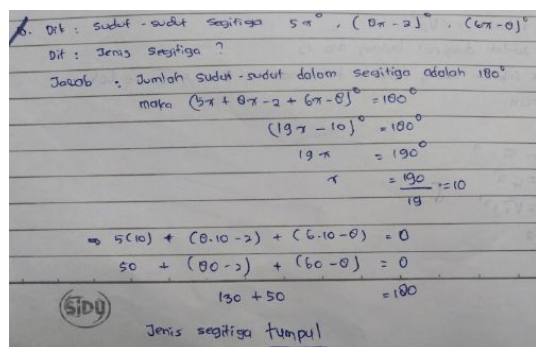 6. Dik : Sudut - sudut segitiga 5x°, (8x - 2)°, (6x - 8)°
Dit : Jenis segitiga ?
Jawab : Jumlah sudut - sudut dalam segitiga adalah 180°
maka (5x + 8x - 2 + 6x - 8)° = 180°
(19x - 10)° = 180°
19x = 190°
x = 190/19 = 10
⇒ 5(10) + (8.10 - 2) + (6.10 - 8) = 0
50 + (80 - 2) + (60 - 8) = 0
130 + 50 = 180
SiDU
Jenis segitiga tumpul